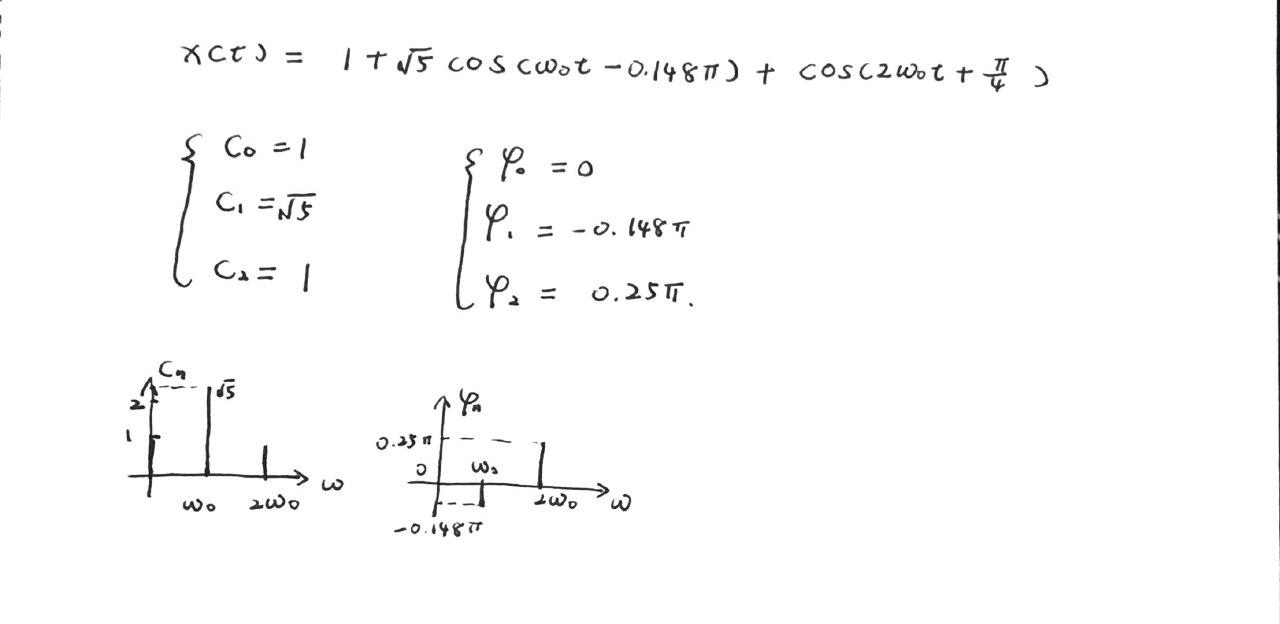 x(t) = 1 + √5 cos(ω₀t - 0.148π) + cos(2ω₀t + π/4)
C₀ = 1
φ₀ = 0
C₁ = √5
φ₁ = -0.148π
C₂ = 1
φ₂ = 0.25π.
Cₙ
√5
2
1
ω₀
2ω₀
ω
φₙ
0.25π
0
ω₀
2ω₀
ω
-0.148π